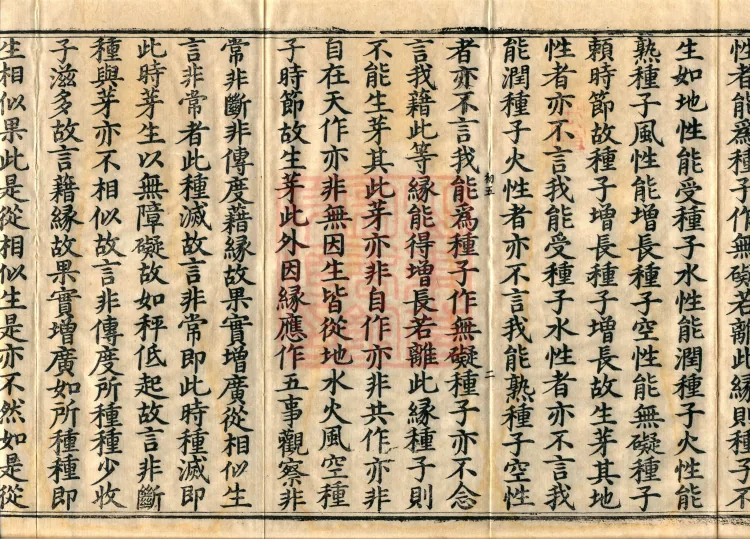 性者能爲種子作無礙若離此緣則種子不
生如地性能受種子水性能潤種子火性能
熟種子風性能增長種子空性能無礙種子
頼時節故種子增長種子增長故生芽其地
性者亦不言我能受種子水性者亦不言我
能潤種子火性者亦不言我能熟種子空性
初五 二
者亦不言我能爲種子作無礙種子亦不念
言我藉此等緣能得增長若離此緣種子則
不能生芽其此芽亦非自作亦非共作亦非
自在天作亦非無因生皆從地水火風空種
子時節故生芽此外因緣應作五事觀察非
常非斷非傳度藉緣故果實增廣從相似生
言非常者此種滅故言非常即此時種滅即
此時芽生以無障礙故如秤低起故言非斷
種與芽亦不相似故言非傳度所種種少收
子滋多故言藉緣故果實增廣如所種種即
生相似果此是從相似生是亦不然如是從